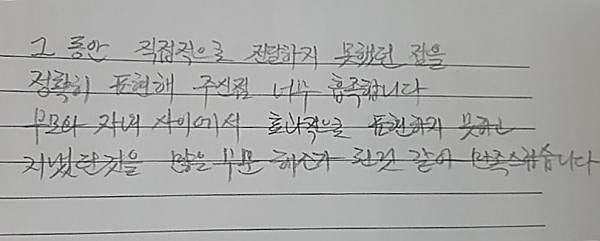 그 동안 직접적으로 전달하지 못했던 점을
정확히 표현해 주신점 너무 흡족합니다
부모와 자녀 사이에서 효과적으로 표현하지 못하고
지냈던것을 많은 부분 해소가 된것 같아 만족스럽습니다